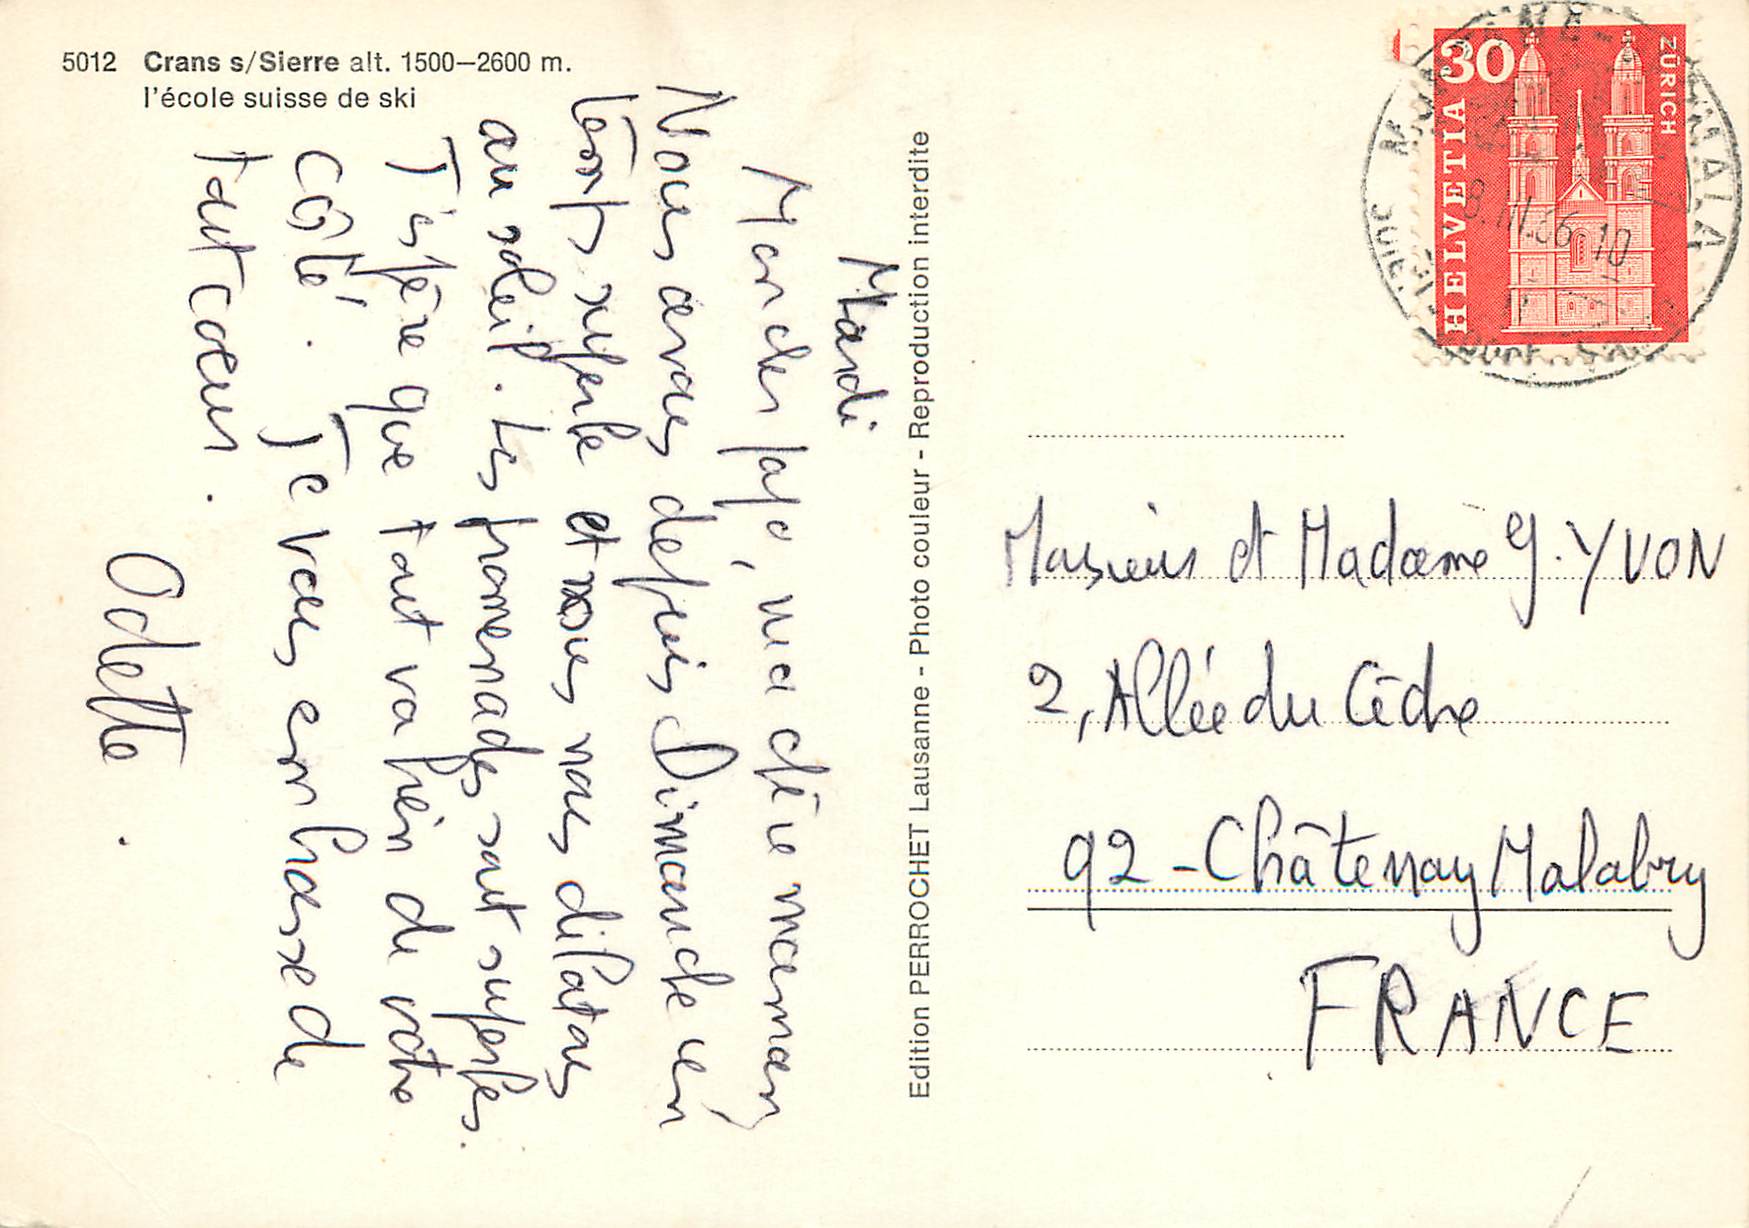 5012 Crans s/Sierre alt. 1500–2600 m.
l'école suisse de ski
Mardi
Mon cher papa, ma chère maman,
Nous avons depuis Dimanche un
temps superbe et nous nous dilatons
au soleil. Les promenades sont superbes.
J'espère que tout va bien de votre
côté. Je vous embrasse de
tout cœur.
Odette.
Edition PERROCHET Lausanne - Photo couleur - Reproduction interdite
30
ZÜRICH
HELVETIA
8.III.66-10
Monsieur et Madame G. YVON
2, Allée du Cèdre
92 - Châtenay Malabry
FRANCE